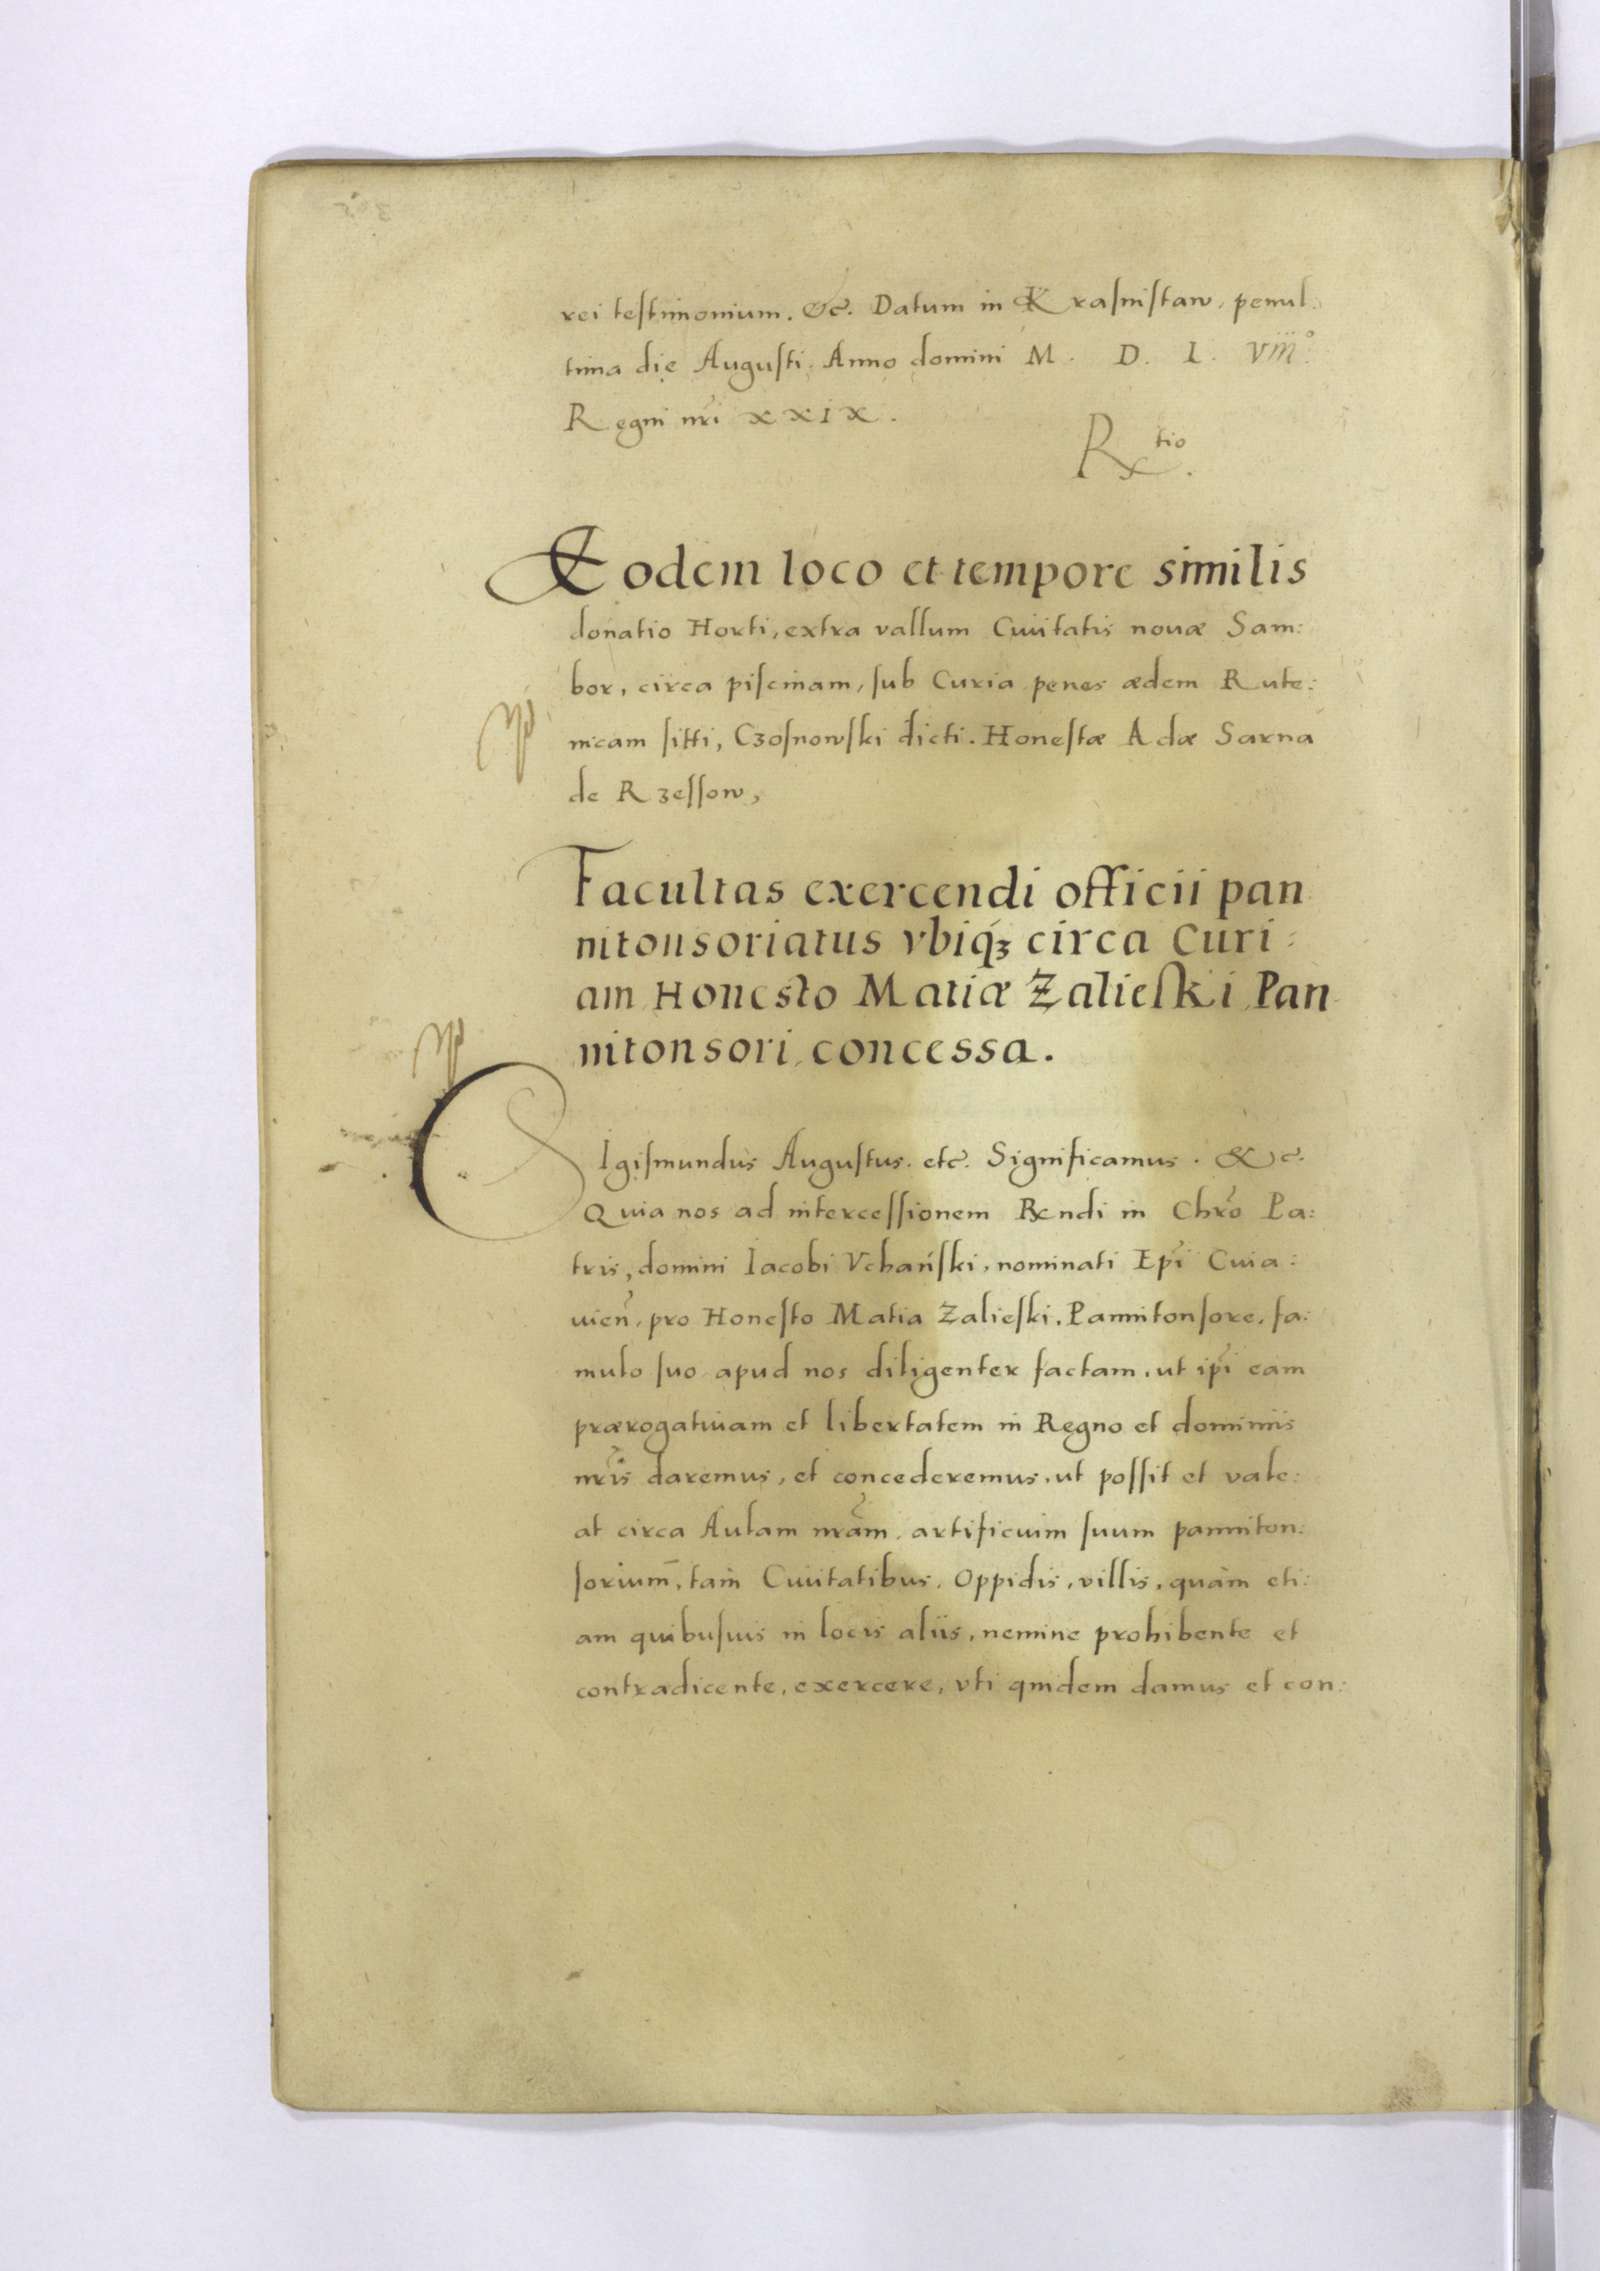 rei testimonium. &c. Datum in Krasnistaw, penul:
tima die Augusti. Anno domini M. D. L. VIII°.
Regni nr̃i XXIX.
R tio.
Eodem loco et tempore similis
donatio Horti, extra vallum Ciuitatis nouæ Sam:
bor, circa piscinam, sub Curia penes ædem Rute:
nicam sitti, Czosnowski dicti. Honestæ Adæ Sarna
de Rzessow,
Facultas exercendi officii pan
nitonsoriatus vbiqꝫ circa Curi:
am Honesto Matiæ Zalieski Pan
nitonsori concessa.
SIgismundus Augustus. etc. Significamus. &c.
Quia nos ad intercessionem Rendi in Chr̃o Pa:
tris, domini Iacobi Vchański, nominati Ep̃i Cuia:
uieñ, pro Honesto Matia Zalieski, Pannitonsore, fa:
mulo suo apud nos diligenter factam, ut ip̃i eam
prærogatiuam et libertatem in Regno et dominiis
nr̃is daremus, et concederemus, ut possit et vale:
at circa Aulam nr̃am, artificium suum panniton:
sorium, tam Ciuitatibus, Oppidis, villis, quàm eti:
am quibusuis in locis aliis, nemine prohibente et
contradicente, exercere, vti quidem damus et con: